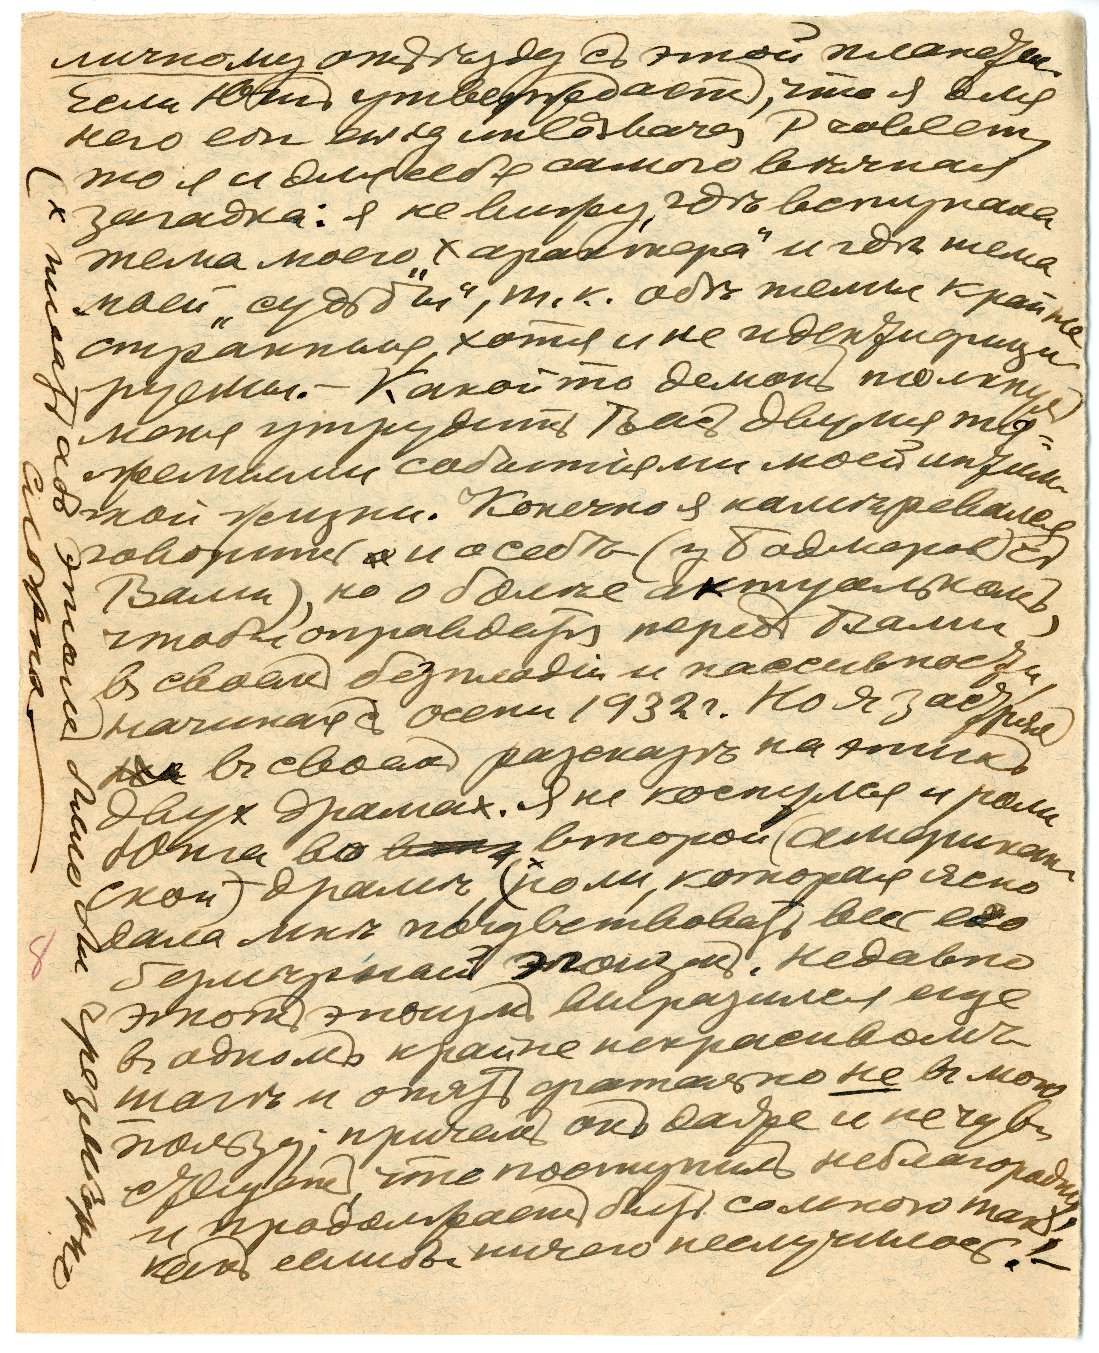 личному отъѣзду съ этой планеты.
Если Юнгъ утверждаетъ, что я для
него ein ewig unlösbares Problem,
то я и для себя самого вѣчная
загадка: я не вижу, гдѣ вступила
тема моего „характера“ и гдѣ тема
моей „судьбы“, т.к. обѣ темы крайне
странныя, хотя и не идентифици-
руемы. – Какой то демонъ толкнулъ
меня утрудить Васъ двумя тя-
желыми событіями моей интим-
ной жизни. Конечно я намѣревался
говорить и о себѣ (у Бодмеровъ съ
Вами), но о болѣе актуальномъ,
чтобы оправдаться передъ Вами
въ своемъ безплодіи и пассивности,
начиная съ осени 1932 г. Но я застрялъ
въ своемъ разсказѣ на этихъ
двухъ драмахъ. Я не коснулся и роли
Юнга во второй (американ-
ской) драмѣ, (х роли, которая ясно
дала мнѣ почувствовать весь его
безмѣрный эгоизмъ. Недавно
этотъ эгоизмъ выразился еще
въ одномъ крайне некрасивомъ
шагѣ и опять фатально не въ мою
пользу; причемъ онъ даже и не чув-
ствуетъ, что поступилъ неблагородно
и продолжаетъ быть со мною такъ,
какъ если бы ничего не случилось!! –
(х писать объ этомъ было бы чрезмѣрно
сложно –
8